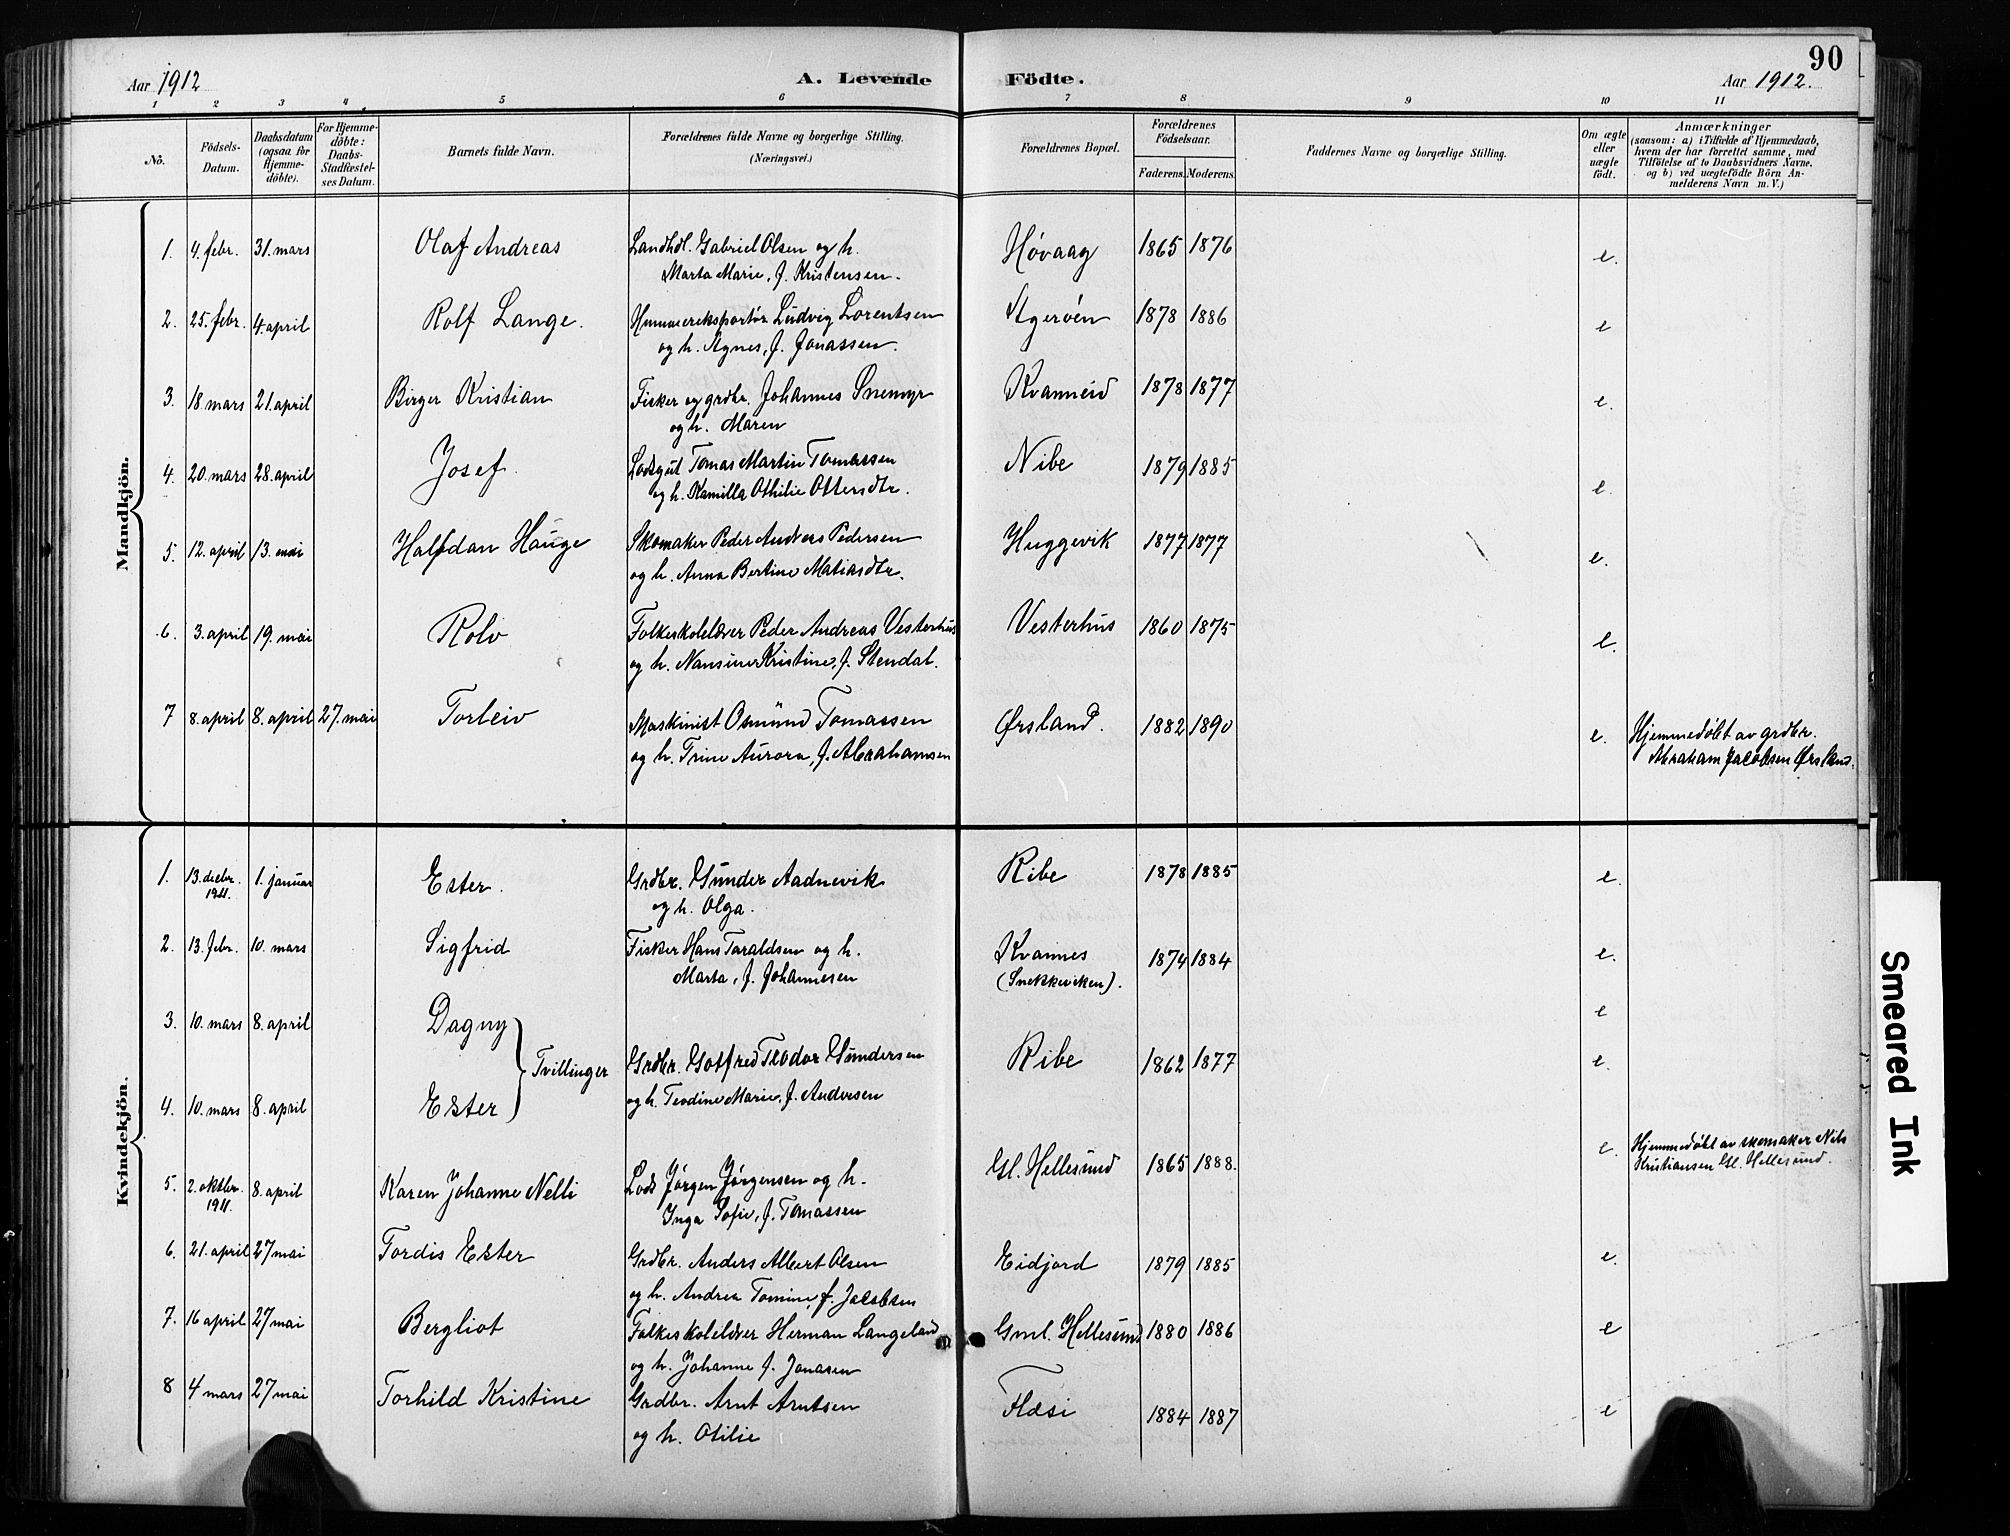 90
Aar 1912 A. Levende Födte. Aar 1912.
1 2 3 4 5 6 7 8 9 10 11
No.
Födsels-Datum.
Daabsdatum (ogsaa for Hjemme-döbte).
For Hjemme-döbte: Daabs-Stadfæstel-ses Datum.
Barnets fulde Navn.
Forældrenes fulde Navne og borgerlige Stilling. (Næringsvei.)
Forældrenes Bopæl.
Forældrenes Födselsaar.
Faderens. Moderens.
Faddernes Navne og borgerlige Stilling.
Om ægte eller uægte födt.
Anmærkninger
(saasom: a) i Tilfælde af Hjemmedaab,
hvem der har forrettet samme, med
Tilföielse af to Daabsvidners Navne.
og b) ved uægtefödte Börn An-
melderens Navn m. V.)
Mandkjön.
1. 4. febr. 31. mars Olaf Andreas Landhdl. Gabriel Olsen og h. Høvaag 1865 1876 e.
Marta Marie, f. Kristensen.
2. 25. febr. 4. april Rolf Lange. Hummereksportør Ludvig Lorentsen Agerøen 1878 1886 e
og h. Agnes, f. Jonassen.
3. 18. mars 21. april Birger Kristian Fisker og grdbr. Johannes Snemyr Kvanneid 1878 1877 e.
og h. Maren
4. 20. mars 28. april Josef. Lodsgut Tomas Martin Tomassen Nibe 1879 1885 e.
og h. Kamilla Othilie Ottersdtr.
5. 12. april 13. mai Halfdan Hauge Skomaker Peder Anders Pedersen Huggevik 1877 1877 e.
og h. Anna Bertine Matiasdtr.
6. 3. april 19. mai Rolv Folkeskolelærer Peder Andreas Vesterhus Vesterhus 1860 1875 e.
og h. Nansine Kristine, f. Stendal.
7 8. april 8. april 27. mai Torleiv Maskinist Osmund Tomassen Ørsland. 1882 1890 e. Hjemmedøbt av grdbr.
og h. Trine Aurora, f. Abrahamsen Abraham Jacobsen Ørsland.
Kvindekjön.
1. 13. decbr. 1911. 1. januar Ester. Grdbr. Gunder Aadnevik Ribe 1878 1885 e.
og h. Olga.
2. 13. febr. 10. mars Sigfrid Fisker Hans Taraldsen og h. Kvannes 1874 1884 e.
Marta, f. Johannesen (Snekkeviken).
3. 10. mars 8. april Dagny e
Tvillinger Grdbr. Gotfred Teodor Gundersen Ribe 1862 1877 e.
4. 10. mars 8. april Ester og h. Teodine Marie, f. Andersen
5. 2. oktbr. 1911. 8. april Karen Johanne Nelli Lods Jørgen Jørgensen og h. Gl. Hellesund 1865 1888. e. Hjemmedøbt av skomaker Nils
Inga Sofie, f. Tomassen Kristiansen Gl. Hellesund.
6. 21. april 27 mai Tordis Ester Grdbr. Anders Albert Olsen Eidjord 1879 1885 e.
og h. Andrea Tomine, f. Jacobsen
7. 16 april 27 mai Bergliot Folkeskolelærer Herman Langeland Gml. Hellesund 1880 1886 e
og h. Johanne f. Jonasen
8 4 mars 27 mai Torhild Kristine Grdbr. Arnt Arntsen Flæsi 1884 1887 e
og h. Otilie
Smeared Ink